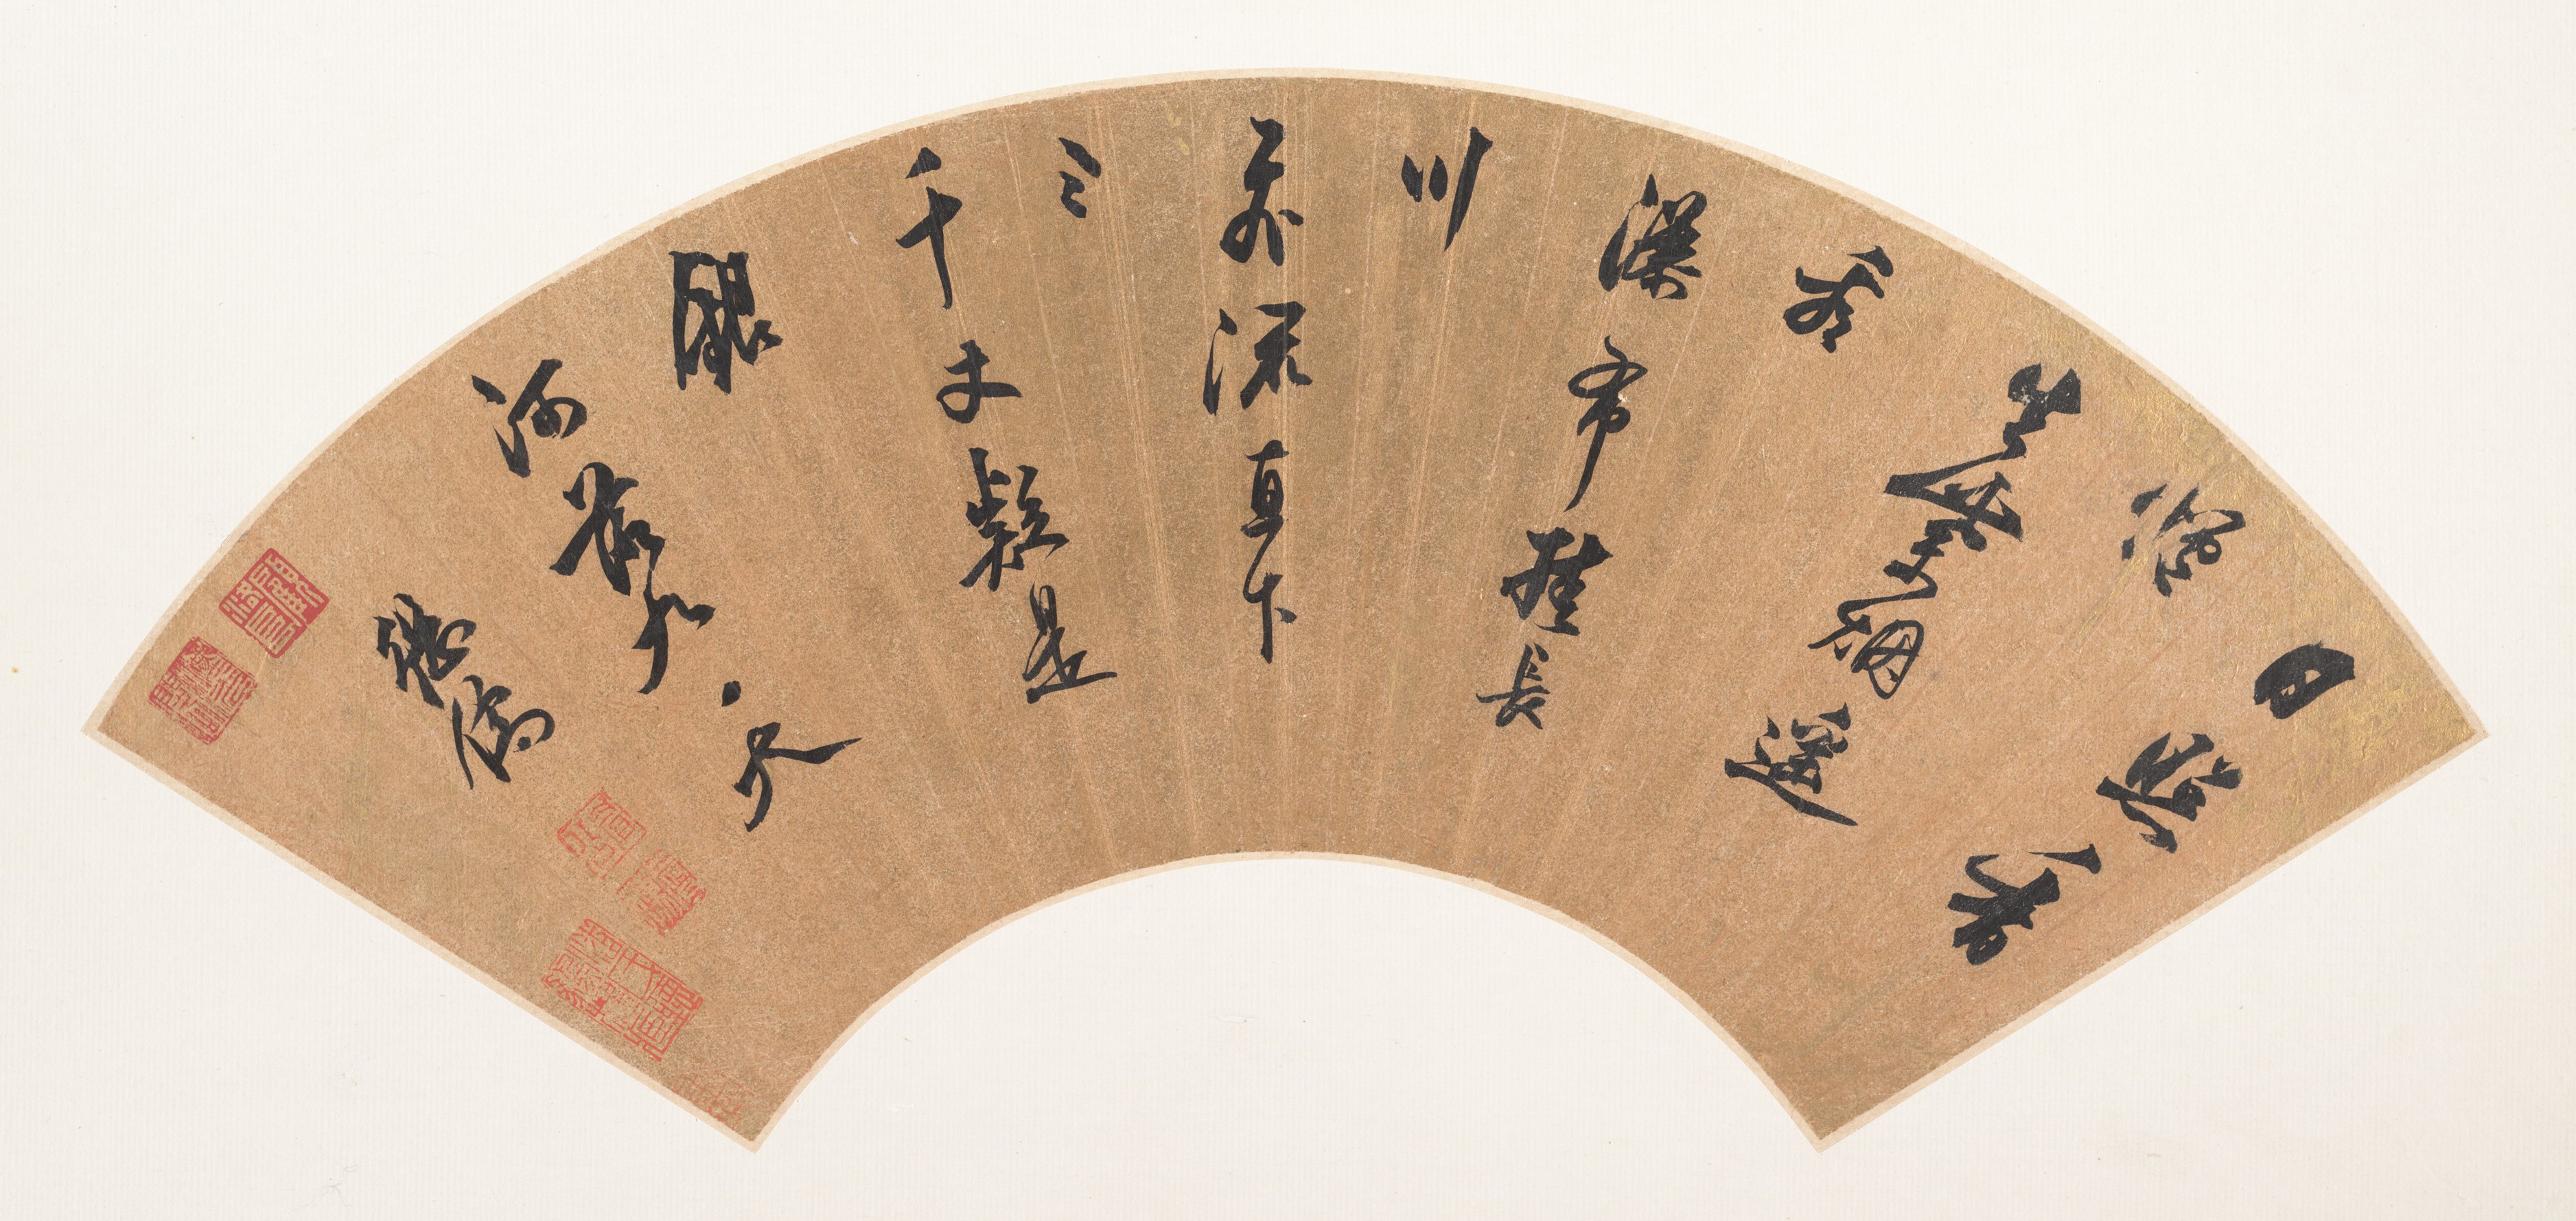 日照香
爐
生紫烟遙
看
瀑布挂長
川
飛流直下
三
千丈疑是
銀
河落九天
張